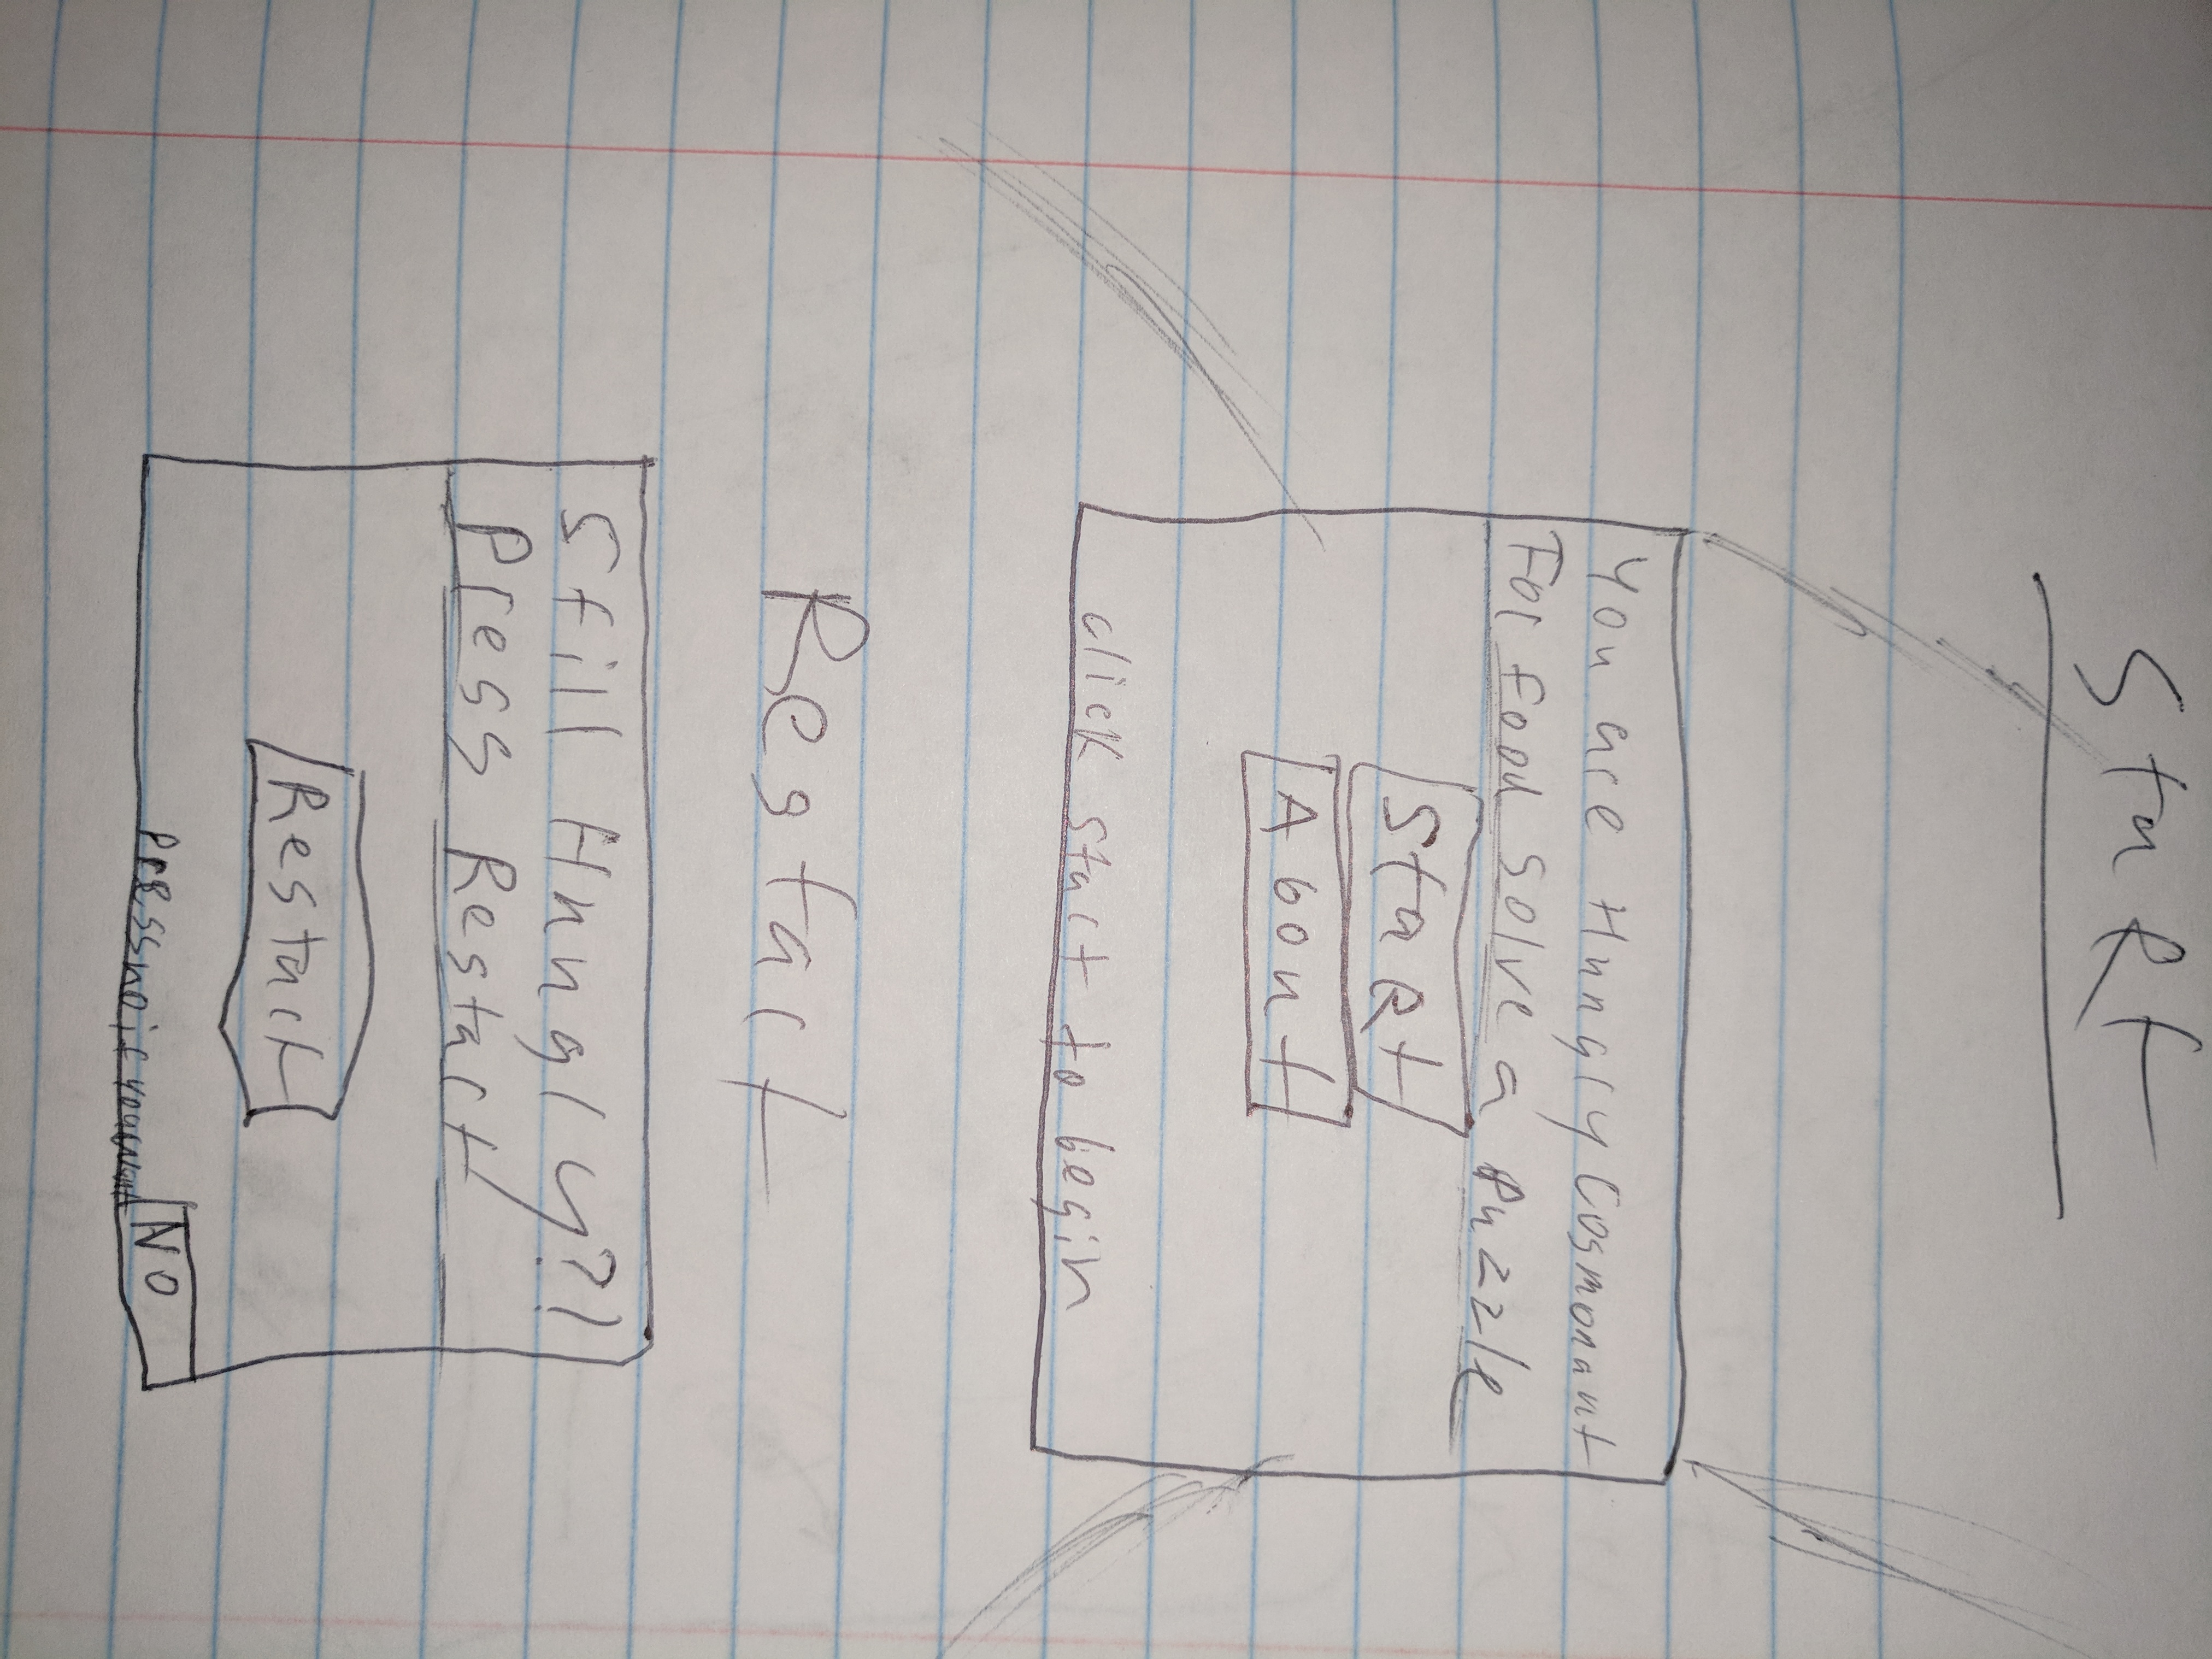 StaRt
You are Hungry Cosmonaut
For Food solve a Puzzle
StaRt
About
click start to begin
Restart
Still Hungry?!
Press Restart
Restart
Press no if you
NO